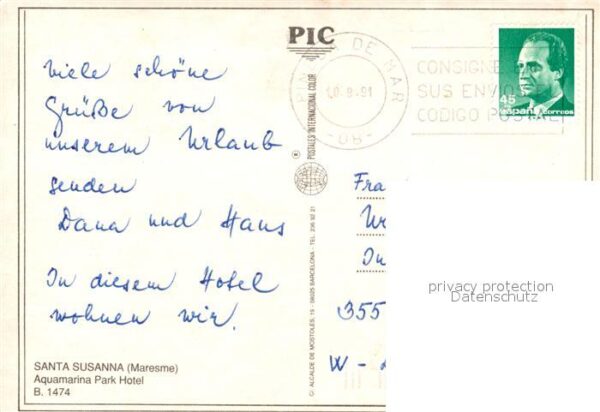 PIC
DE MAR
10-8-91
-08-
CONSIGNE
SUS ENVIOS
CODIGO POSTAL
45
españa CORREOS
viele schöne
Grüße von
unserem Urlaub
senden
Dana und Hans
In diesem Hotel
wohnen wir.
POSTALES INTERNACIONAL COLOR
C/ ALCALDE DE MOSTOLES, 15 - 08025 BARCELONA - TEL. 236 92 21
Fra
In
355
W -
privacy protection
Datenschutz
SANTA SUSANNA (Maresme)
Aquamarina Park Hotel
B. 1474